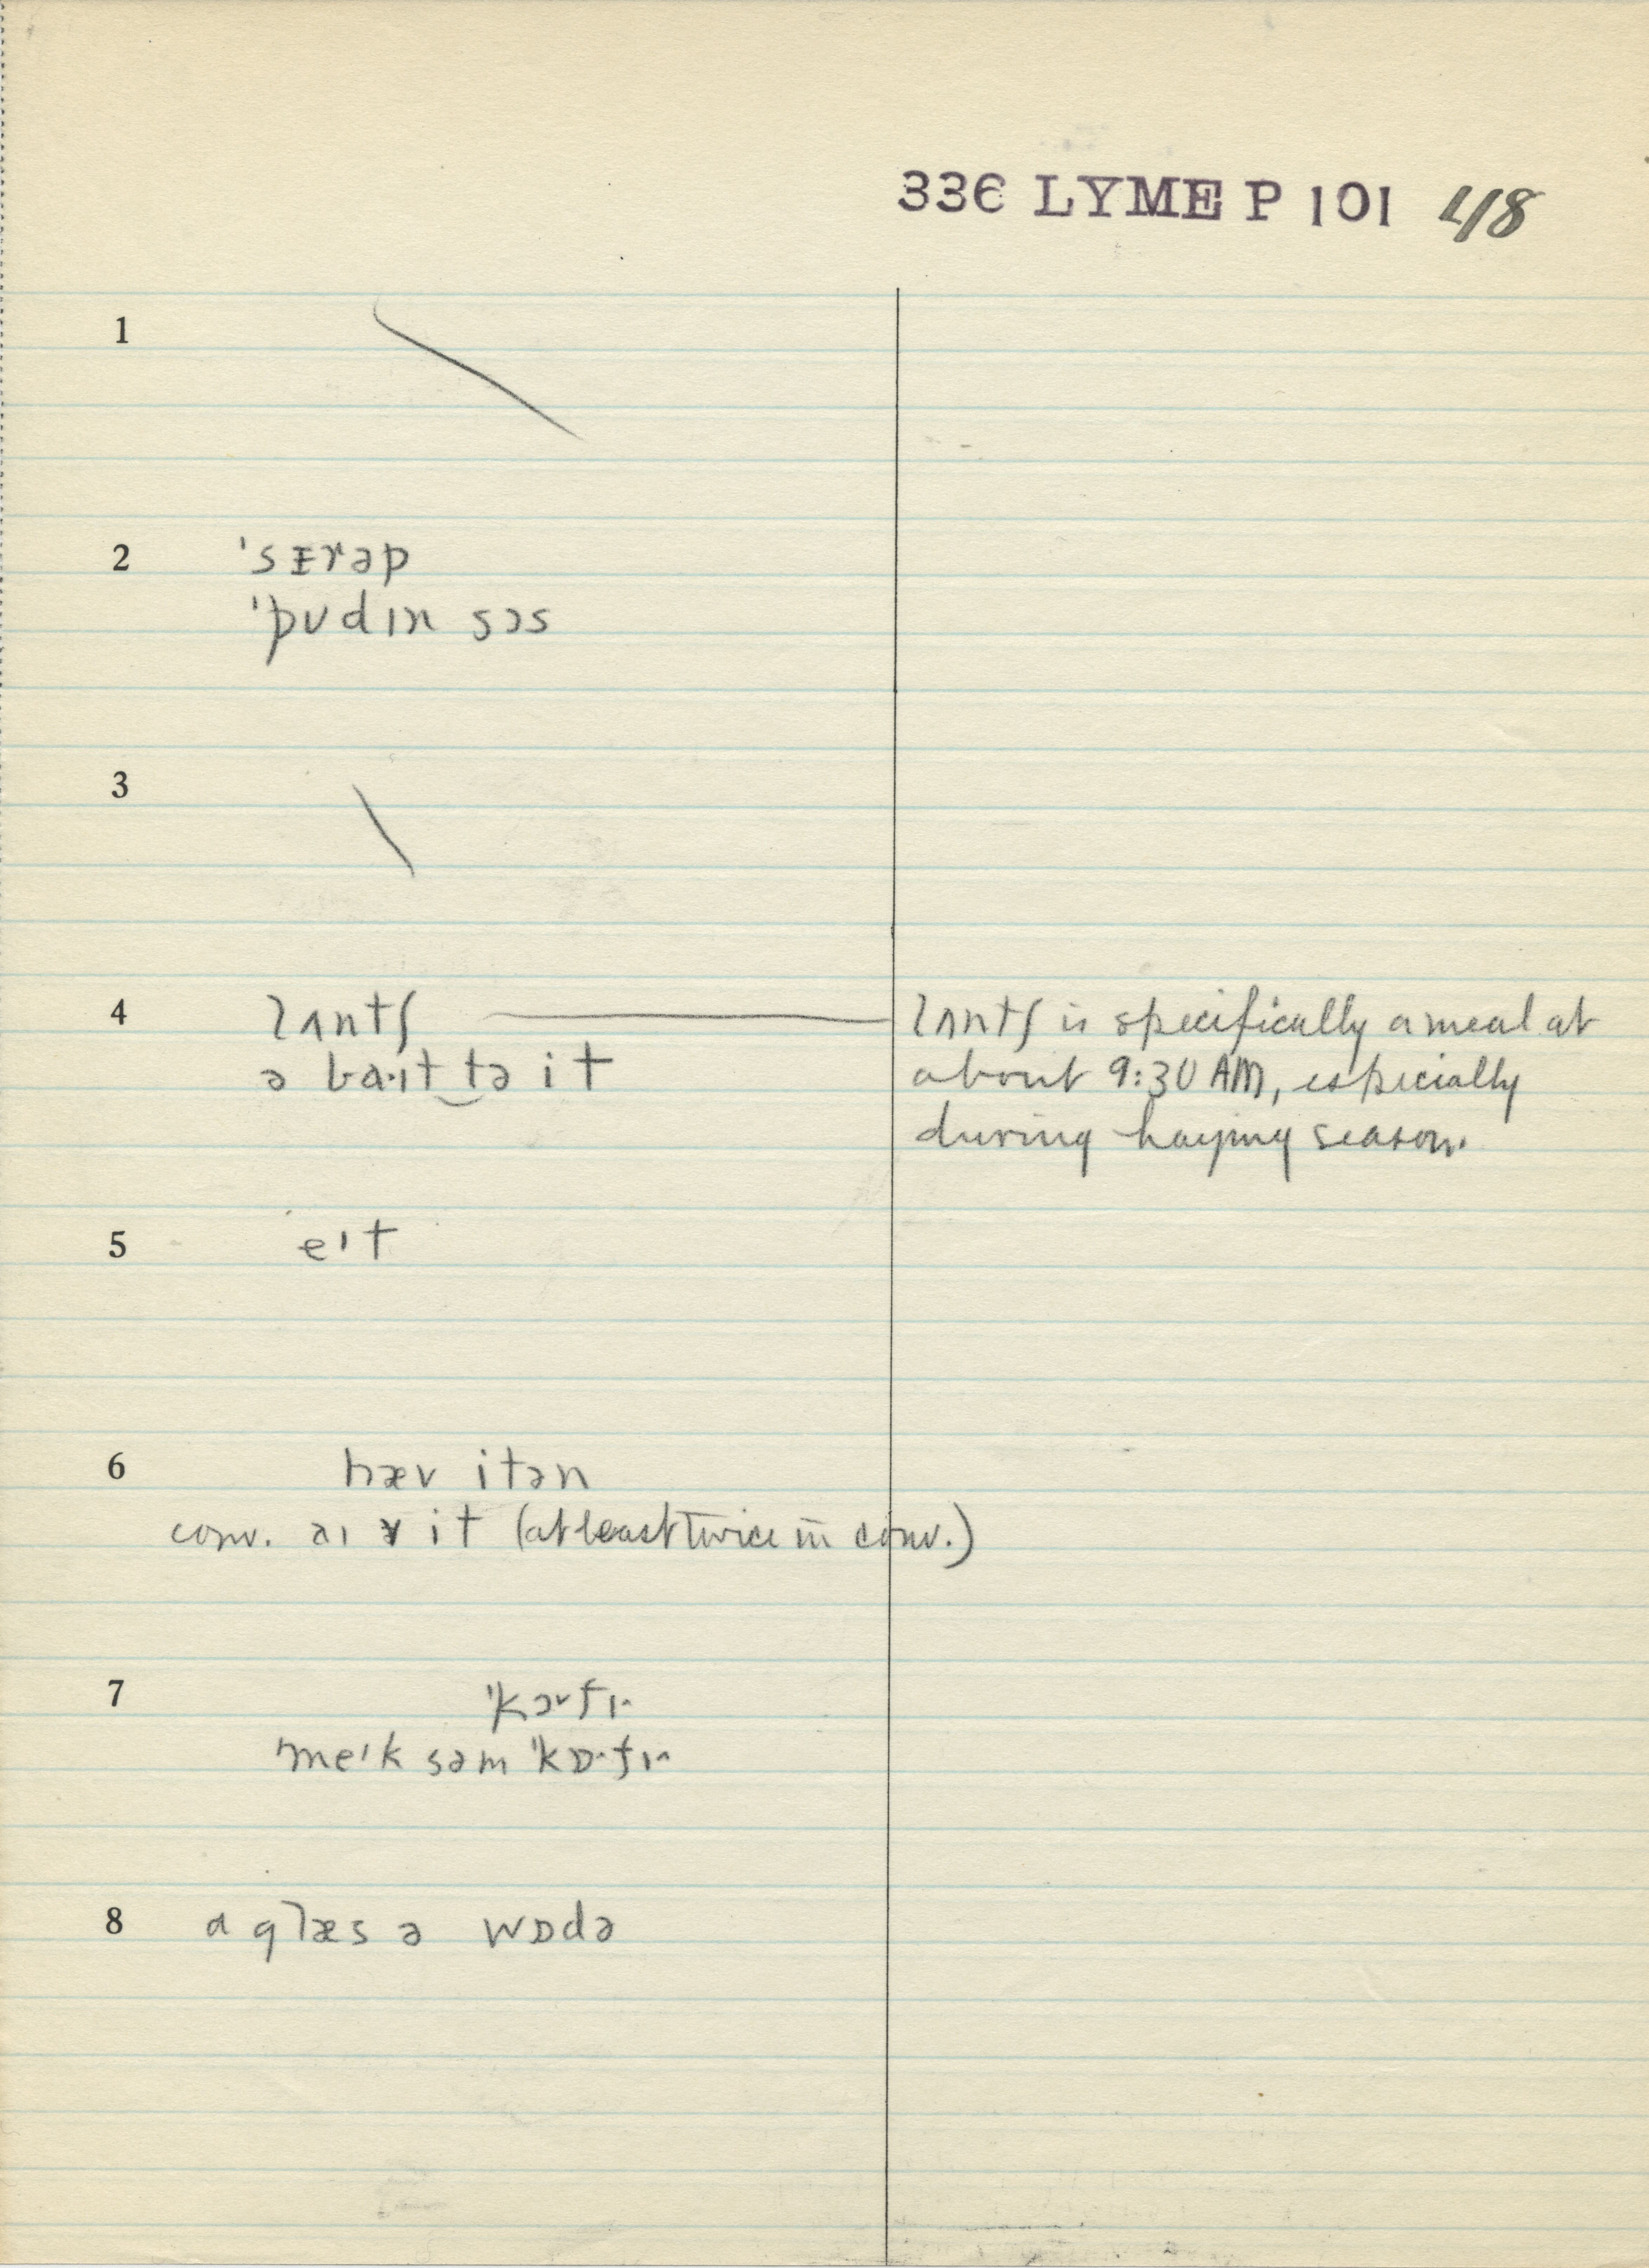 336 LYME P 101 48
1
2 ˈsɪrəp
ˈpʊdɪn sɔs
3
4 lʌntʃ lʌntʃ is specifically a meal at
ə ba·ɪt‿tə it about 9:30 AM, especially
during haying season.
5 eɪt
6 hæv itən
conv. aɪ v it (at least twice in conv.)
7 ˈkɔ˅fɪ·
ˈmeɪk səm ˈkɒ·fɪ·
8 a glæs ə wɒdə